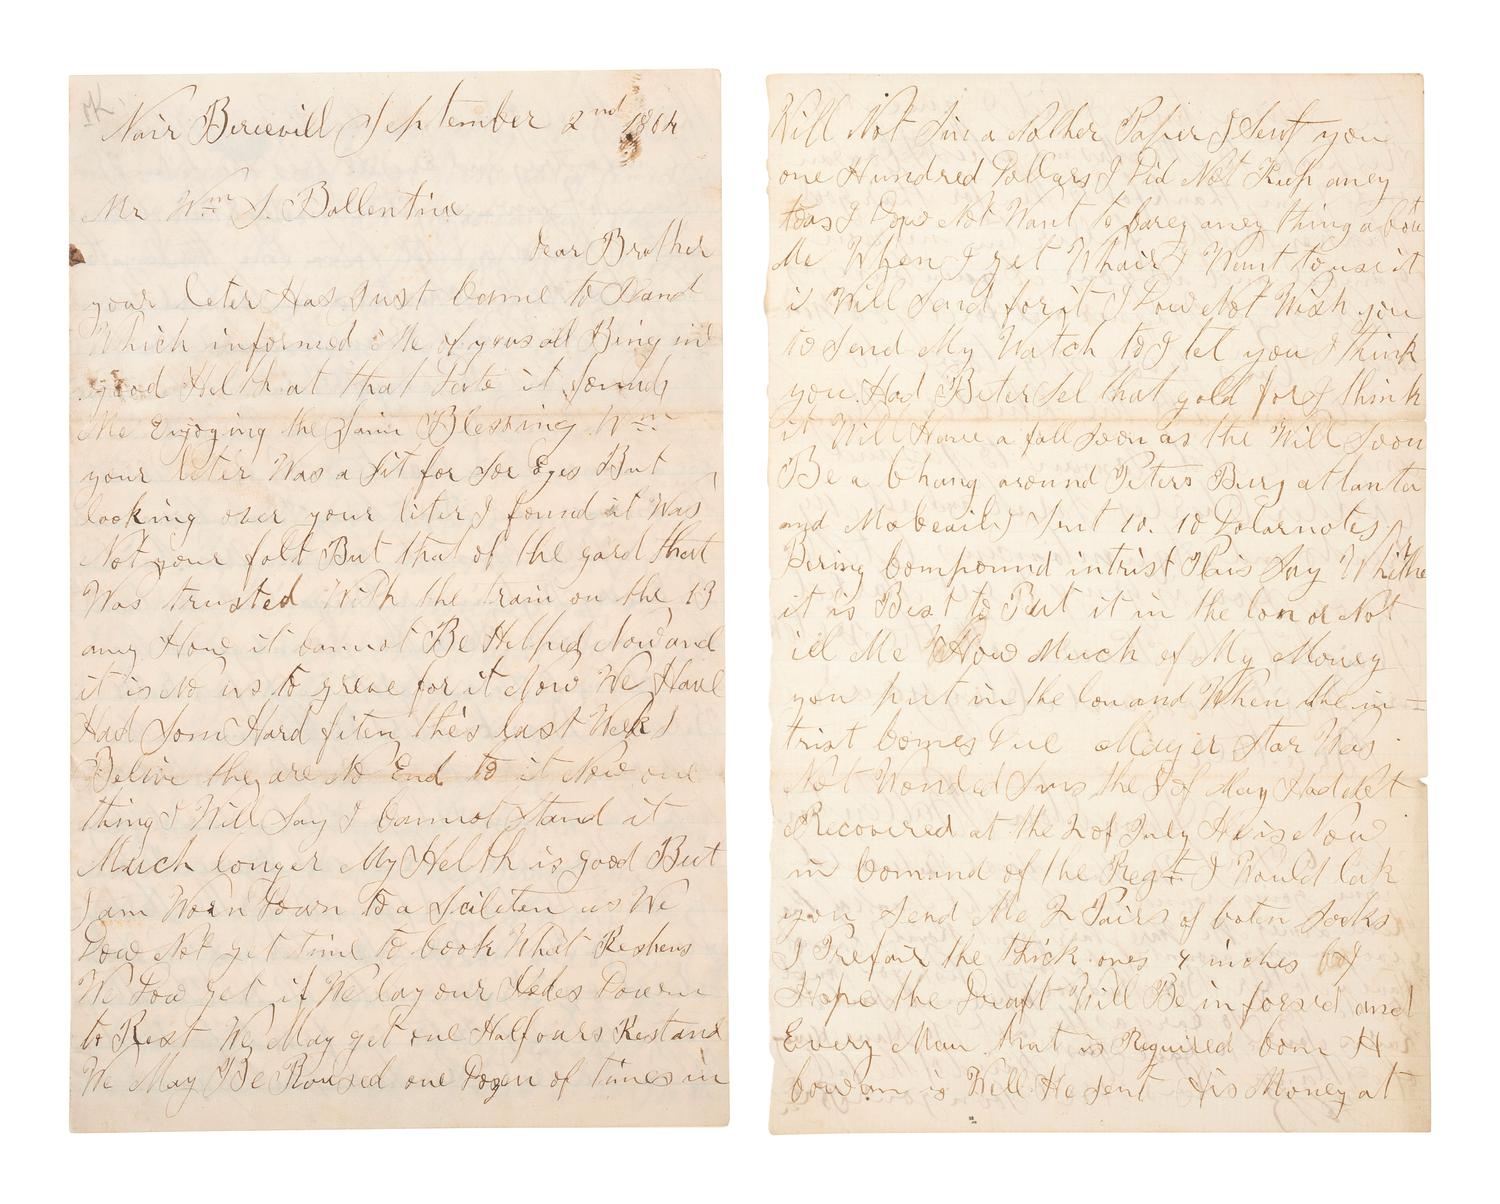 Nair Berievill September 2nd 1864
Mr Wm S. Ballentine
dear Brother
your leter Has Just Came to Hand
Which informed Me of yous all Being in
good Helth at that Date it found
Me Enjoying the Saim Blessing Wm
your leter Was a Sit for Sor Eyes But
looking over your liter I found it Was
Not your folt But that of the gard that
Was trusted With the train on the 13
any How it Cannot Be Helped Now and
it is No us to greve for it Now We Have
Had Som Hard fiten this last Week I
Belive they are No End to it Now one
thing I Will Say I Cannot Stand it
Much longer My Helth is good But
I am Worn Down to a Scileten as We
Dow Not get time to Cook What Reshens
We Dow get if We lay our Hedes Down
to Rest We May get one Half ours Rest and
We May Be Rousd one Dozen of times in
Will Not Sin a Nother Paper I Sent you
one Hundred Dollars I Did Not Keep aney
as I Dow Not Want to Carey aney thing about
Me When I get Whair I Want to use it
i Will Send for it I Dow Not Wish you
to Send My Watch to I tel you I think
you Had Beter Sel that gold for I think
it Will Have a fall Soon as the Will Soon
Be a Chang around Peters Burg atlanta
and Mobeail I Sent 10. 10 Dolar notes
Bering Compound intrist This Say Whithe
it is Best to Put it in the lon or Not
Me How Much of My Money
you put in the lon and When the in=
trist Comes Due Mayer Star Was
Not Wonded Sins the 8 of May Had Not
Recovered at the 2 of July He is Now
in Comand of the Regt I Would lik
you Send Me 2 Pairs of Coten Socks
I Prefair the thick ones 4 inches
Hope the Draft Will Be in forsed and
Every Man that is Required Com H
Cow an is Will He sent His Money at